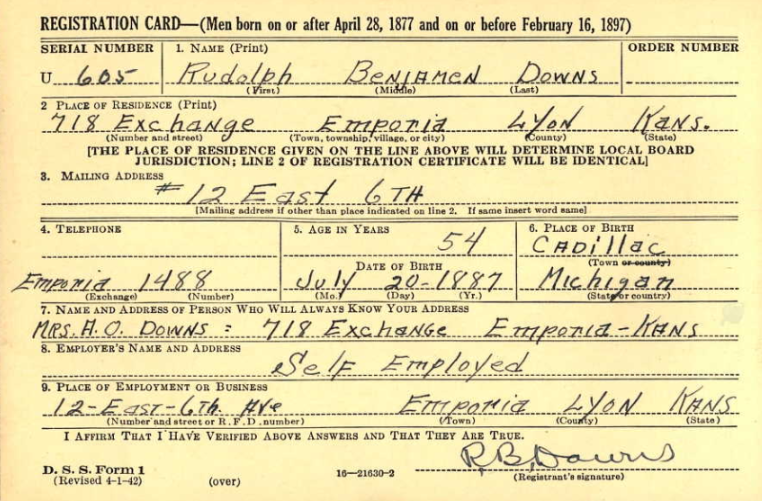 REGISTRATION CARD—(Men born on or after April 28, 1877 and on or before February 16, 1897)
SERIAL NUMBER 1. NAME (Print) ORDER NUMBER
U 605 Rudolph Benjamen Downs
(First) (Middle) (Last)
2 PLACE OF RESIDENCE (Print)
718 Exchange Emporia Lyon Kans.
(Number and street) (Town, township, village, or city) (County) (State)
[THE PLACE OF RESIDENCE GIVEN ON THE LINE ABOVE WILL DETERMINE LOCAL BOARD
JURISDICTION; LINE 2 OF REGISTRATION CERTIFICATE WILL BE IDENTICAL]
3. MAILING ADDRESS
#12 East 6TH
[Mailing address if other than place indicated on line 2. If same insert word same]
4. TELEPHONE 5. AGE IN YEARS 6. PLACE OF BIRTH
54 Cadillac
(Town or county)
DATE OF BIRTH
Emporia 1488 July 20-1887 Michigan
(Exchange) (Number) (Mo.) (Day) (Yr.) (State or country)
7. NAME AND ADDRESS OF PERSON WHO WILL ALWAYS KNOW YOUR ADDRESS
MRS. A. O. DOWNS: 718 Exchange Emporia-Kans
8. EMPLOYER'S NAME AND ADDRESS
Self Employed
9. PLACE OF EMPLOYMENT OR BUSINESS
12-East-6th Ave Emporia Lyon Kans
(Number and street or R. F. D. number) (Town) (County) (State)
I AFFIRM THAT I HAVE VERIFIED ABOVE ANSWERS AND THAT THEY ARE TRUE.
R. B. Downs
D. S. S. Form 1
(Revised 4-1-42) (over) 16—21630-2 (Registrant's signature)